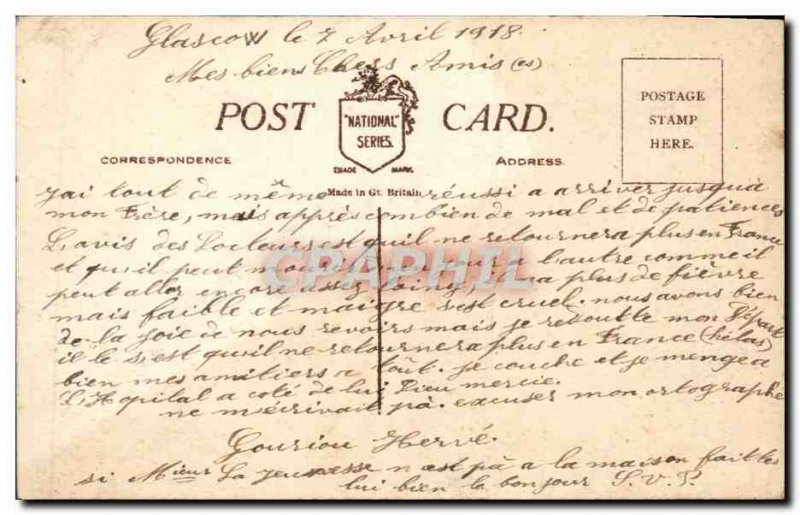 Glascow le 7 Avril 1918.
Mes biens Chers Amis (es)
POST CARD.
"NATIONAL"
SERIES.
TRADE MARK.
POSTAGE
STAMP
HERE.
CORRESPONDENCE
ADDRESS
Made in Gt. Britain
j'ai tout de même réussi a arriver jusqu'à
mon Frère, mais apprés combien de mal et de patiences
L'avis des Docteurs est qu'il ne retournera plus en France
et qu'il peut mourir a l'autre comme il
peut aller encore assez a plus de fièvre
mais faible et maigre s'est cruel. nous avons bien
de la joie de nous revoirs mais je redoutte mon Départ
il le s'est qu'il ne retournera plus en France (hélas)
bien mes amitiers a tout. je couche et je menge a
L'Hopital a coté de lui Dieu mercie.
ne m'écrivait pà. excuser mon ortographe
Gouriou Hervé.
si Mieur La jeunesse n'est pà a la maison faites
lui bien le bonjour S.V.P.
CPAPHIL